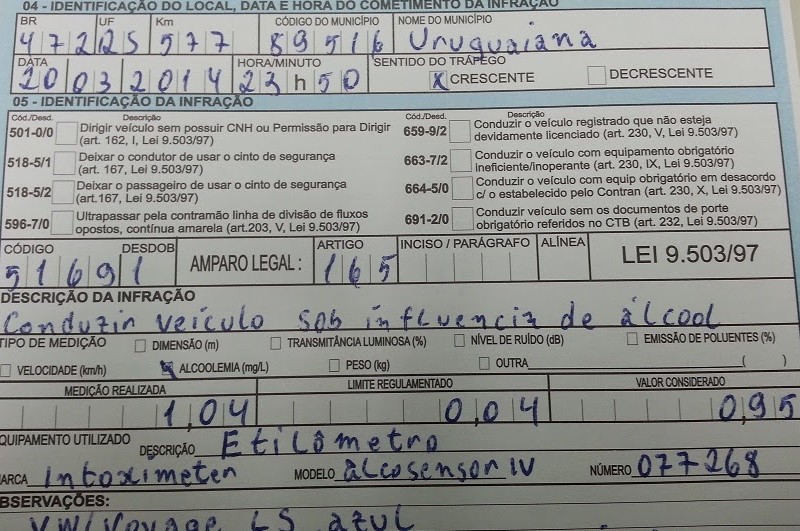 04 - IDENTIFICAÇÃO DO LOCAL, DATA E HORA DO COMETIMENTO DA INFRAÇÃO
BR UF Km CÓDIGO DO MUNICÍPIO NOME DO MUNICÍPIO
472 25 577 89516 Uruguaiana
DATA HORA/MINUTO SENTIDO DO TRÁFEGO
20032014 23 h 50 X CRESCENTE DECRESCENTE
05 - IDENTIFICAÇÃO DA INFRAÇÃO
Cód./Desd. Descrição
501-0/0 Dirigir veículo sem possuir CNH ou Permissão para Dirigir
(art. 162, I, Lei 9.503/97)
518-5/1 Deixar o condutor de usar o cinto de segurança
(art. 167, Lei 9.503/97)
518-5/2 Deixar o passageiro de usar o cinto de segurança
(art.167, Lei 9.503/97)
596-7/0 Ultrapassar pela contramão linha de divisão de fluxos
opostos, contínua amarela (art.203, V, Lei 9.503/97)
Cód./Desd. Descrição
659-9/2 Conduzir o veículo registrado que não esteja
devidamente licenciado (art. 230, V, Lei 9.503/97)
663-7/2 Conduzir o veículo com equipamento obrigatório
ineficiente/inoperante (art. 230, IX, Lei 9.503/97)
664-5/0 Conduzir o veículo com equip obrigatório em desacordo
c/ o estabelecido pelo Contran (art. 230, X, Lei 9.503/97)
691-2/0 Conduzir veículo sem os documentos de porte
obrigatório referidos no CTB (art. 232, Lei 9.503/97)
CÓDIGO DESDOB AMPARO LEGAL: ARTIGO INCISO / PARÁGRAFO ALÍNEA LEI 9.503/97
51691 165
DESCRIÇÃO DA INFRAÇÃO
Conduzir veículo sob influencia de álcool
TIPO DE MEDIÇÃO DIMENSÃO (m) TRANSMITÂNCIA LUMINOSA (%) NÍVEL DE RUÍDO (dB) EMISSÃO DE POLUENTES (%)
VELOCIDADE (km/h) X ALCOOLEMIA (mg/L) PESO (kg) OUTRA ( )
MEDIÇÃO REALIZADA LIMITE REGULAMENTADO VALOR CONSIDERADO
1,04 0,04 0,95
QUIPAMENTO UTILIZADO DESCRIÇÃO Etilômetro
ARCA Intoximeter MODELO alcosensor IV NÚMERO 077268
BSERVAÇÕES:
VW/Voyage LS azul